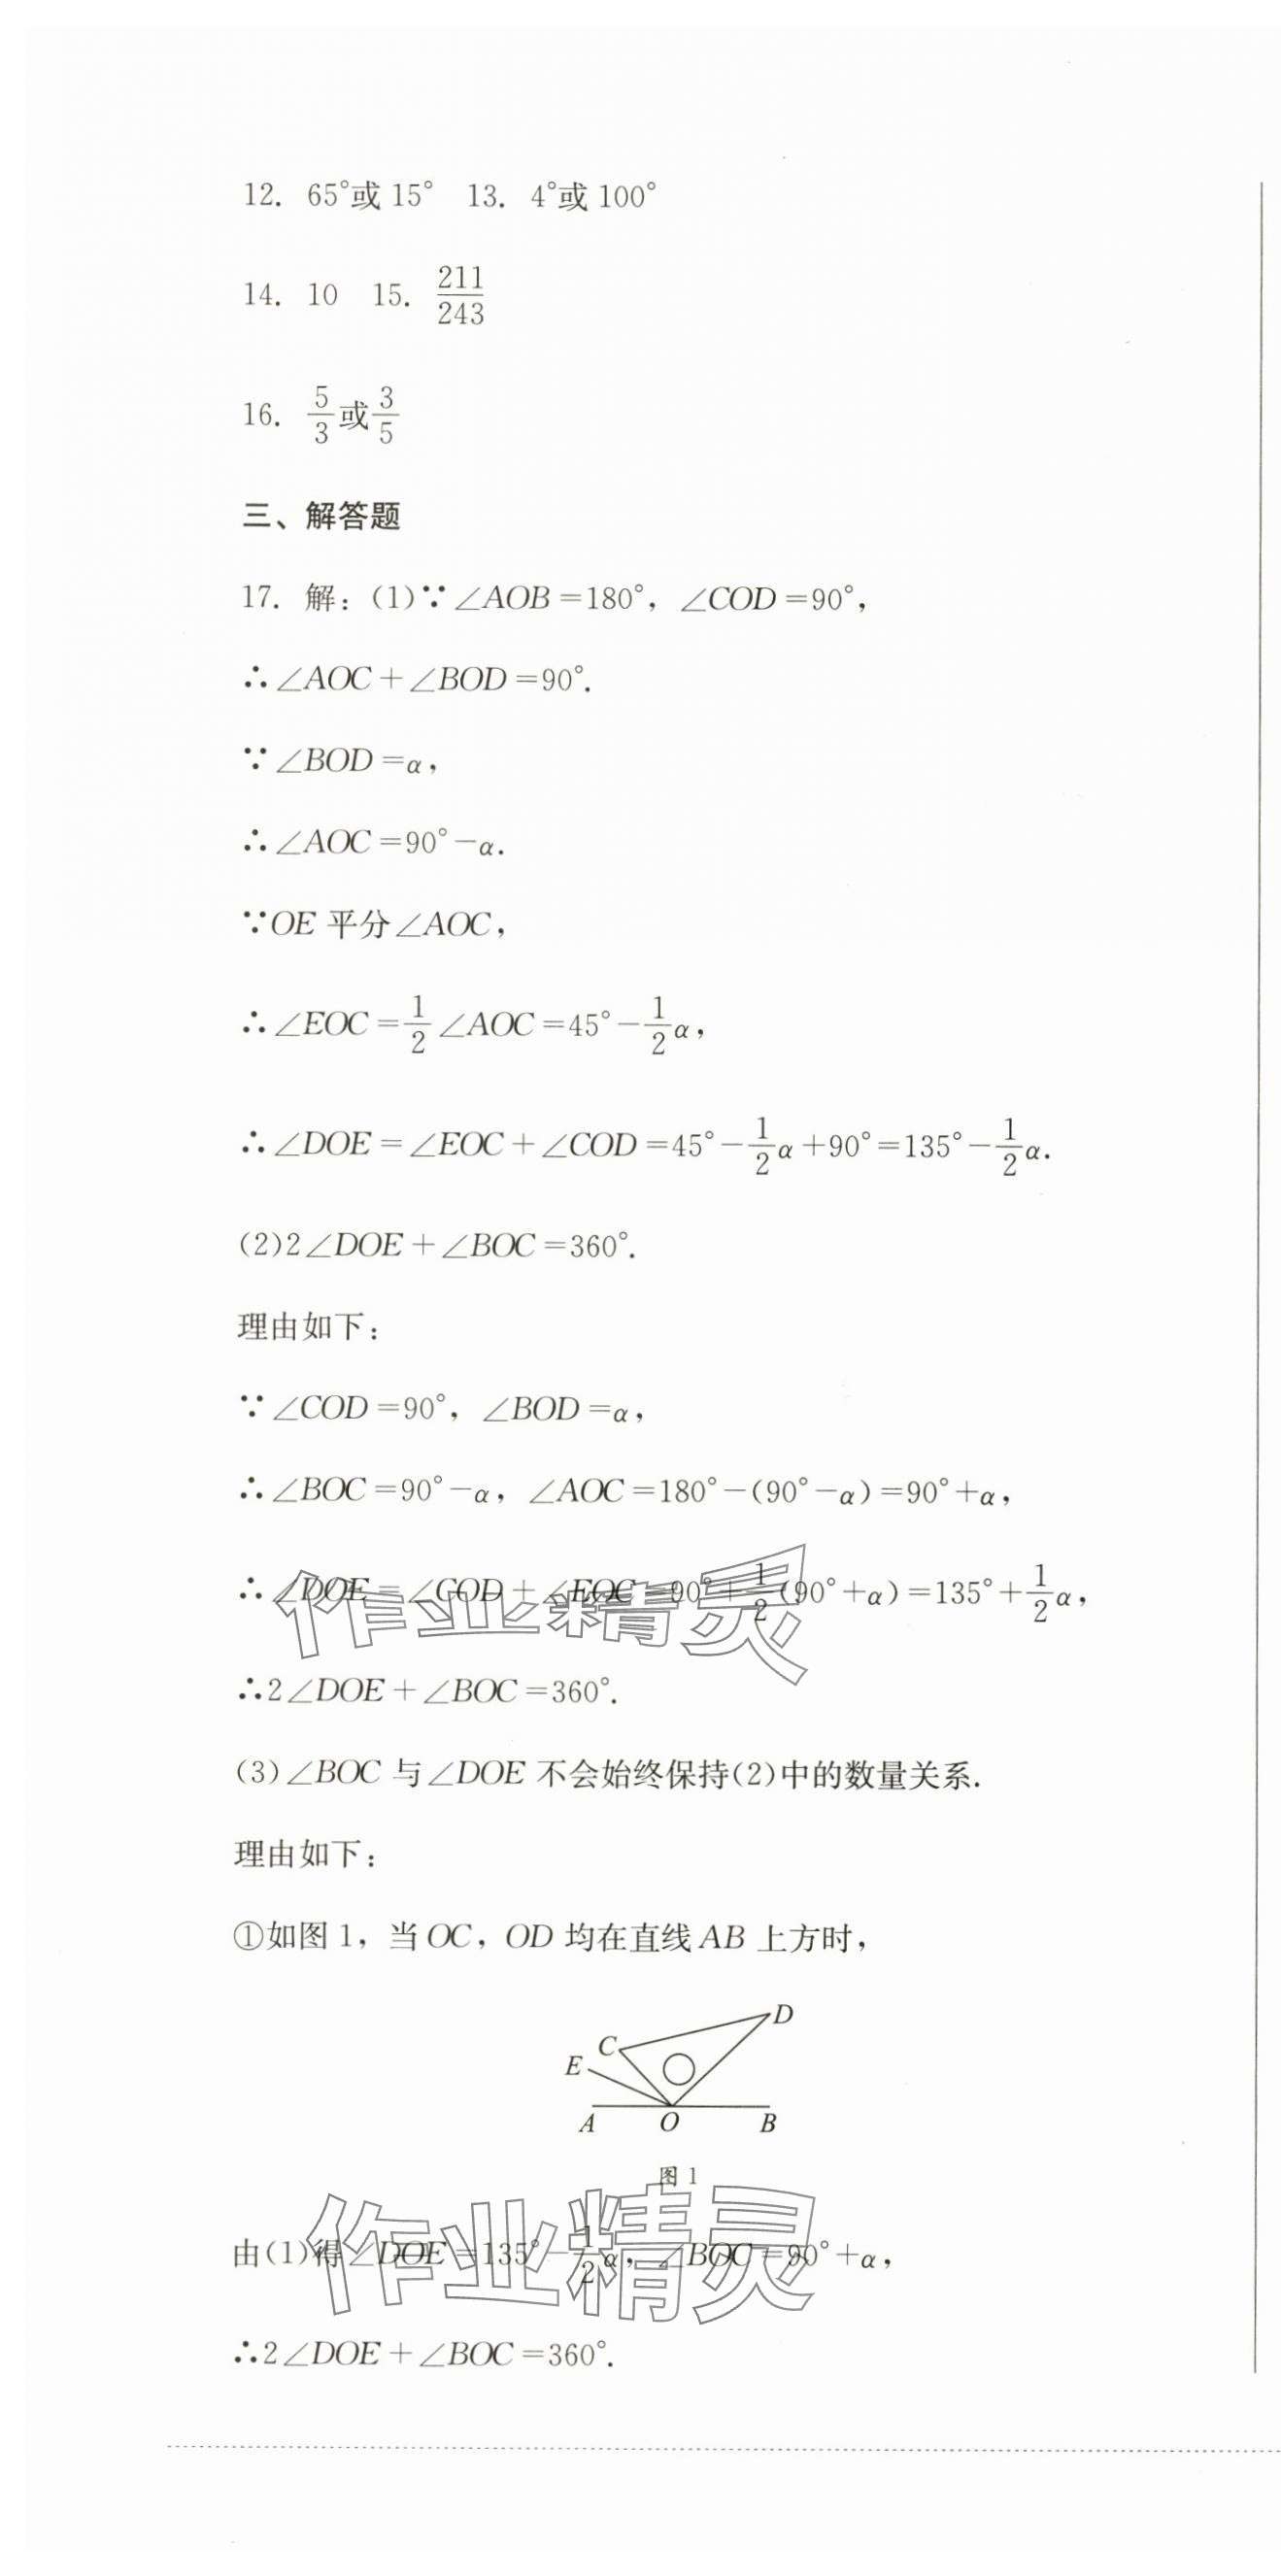 12. 65°或 15° 13. 4°或 100°
14. 10 15. 211/243
16. 5/3或3/5
三、解答题
17. 解：(1)∵∠AOB=180°，∠COD=90°，
∴∠AOC+∠BOD=90°.
∵∠BOD=α，
∴∠AOC=90°-α.
∵OE 平分∠AOC，
∴∠EOC=1/2∠AOC=45°-1/2α，
∴∠DOE=∠EOC+∠COD=45°-1/2α+90°=135°-1/2α.
(2)2∠DOE+∠BOC=360°.
理由如下：
∵∠COD=90°，∠BOD=α，
∴∠BOC=90°-α，∠AOC=180°-(90°-α)=90°+α，
∴∠DOE=∠COD+∠EOC=90°+1/2(90°+α)=135°+1/2α，
作业精灵
∴2∠DOE+∠BOC=360°.
(3)∠BOC 与∠DOE 不会始终保持(2)中的数量关系.
理由如下：
①如图 1，当 OC，OD 均在直线 AB 上方时，
D
C
E
A O B
图 1
由(1)得∠DOE=135°-1/2α，∠BOC=90°+α，
作业精灵
∴2∠DOE+∠BOC=360°.